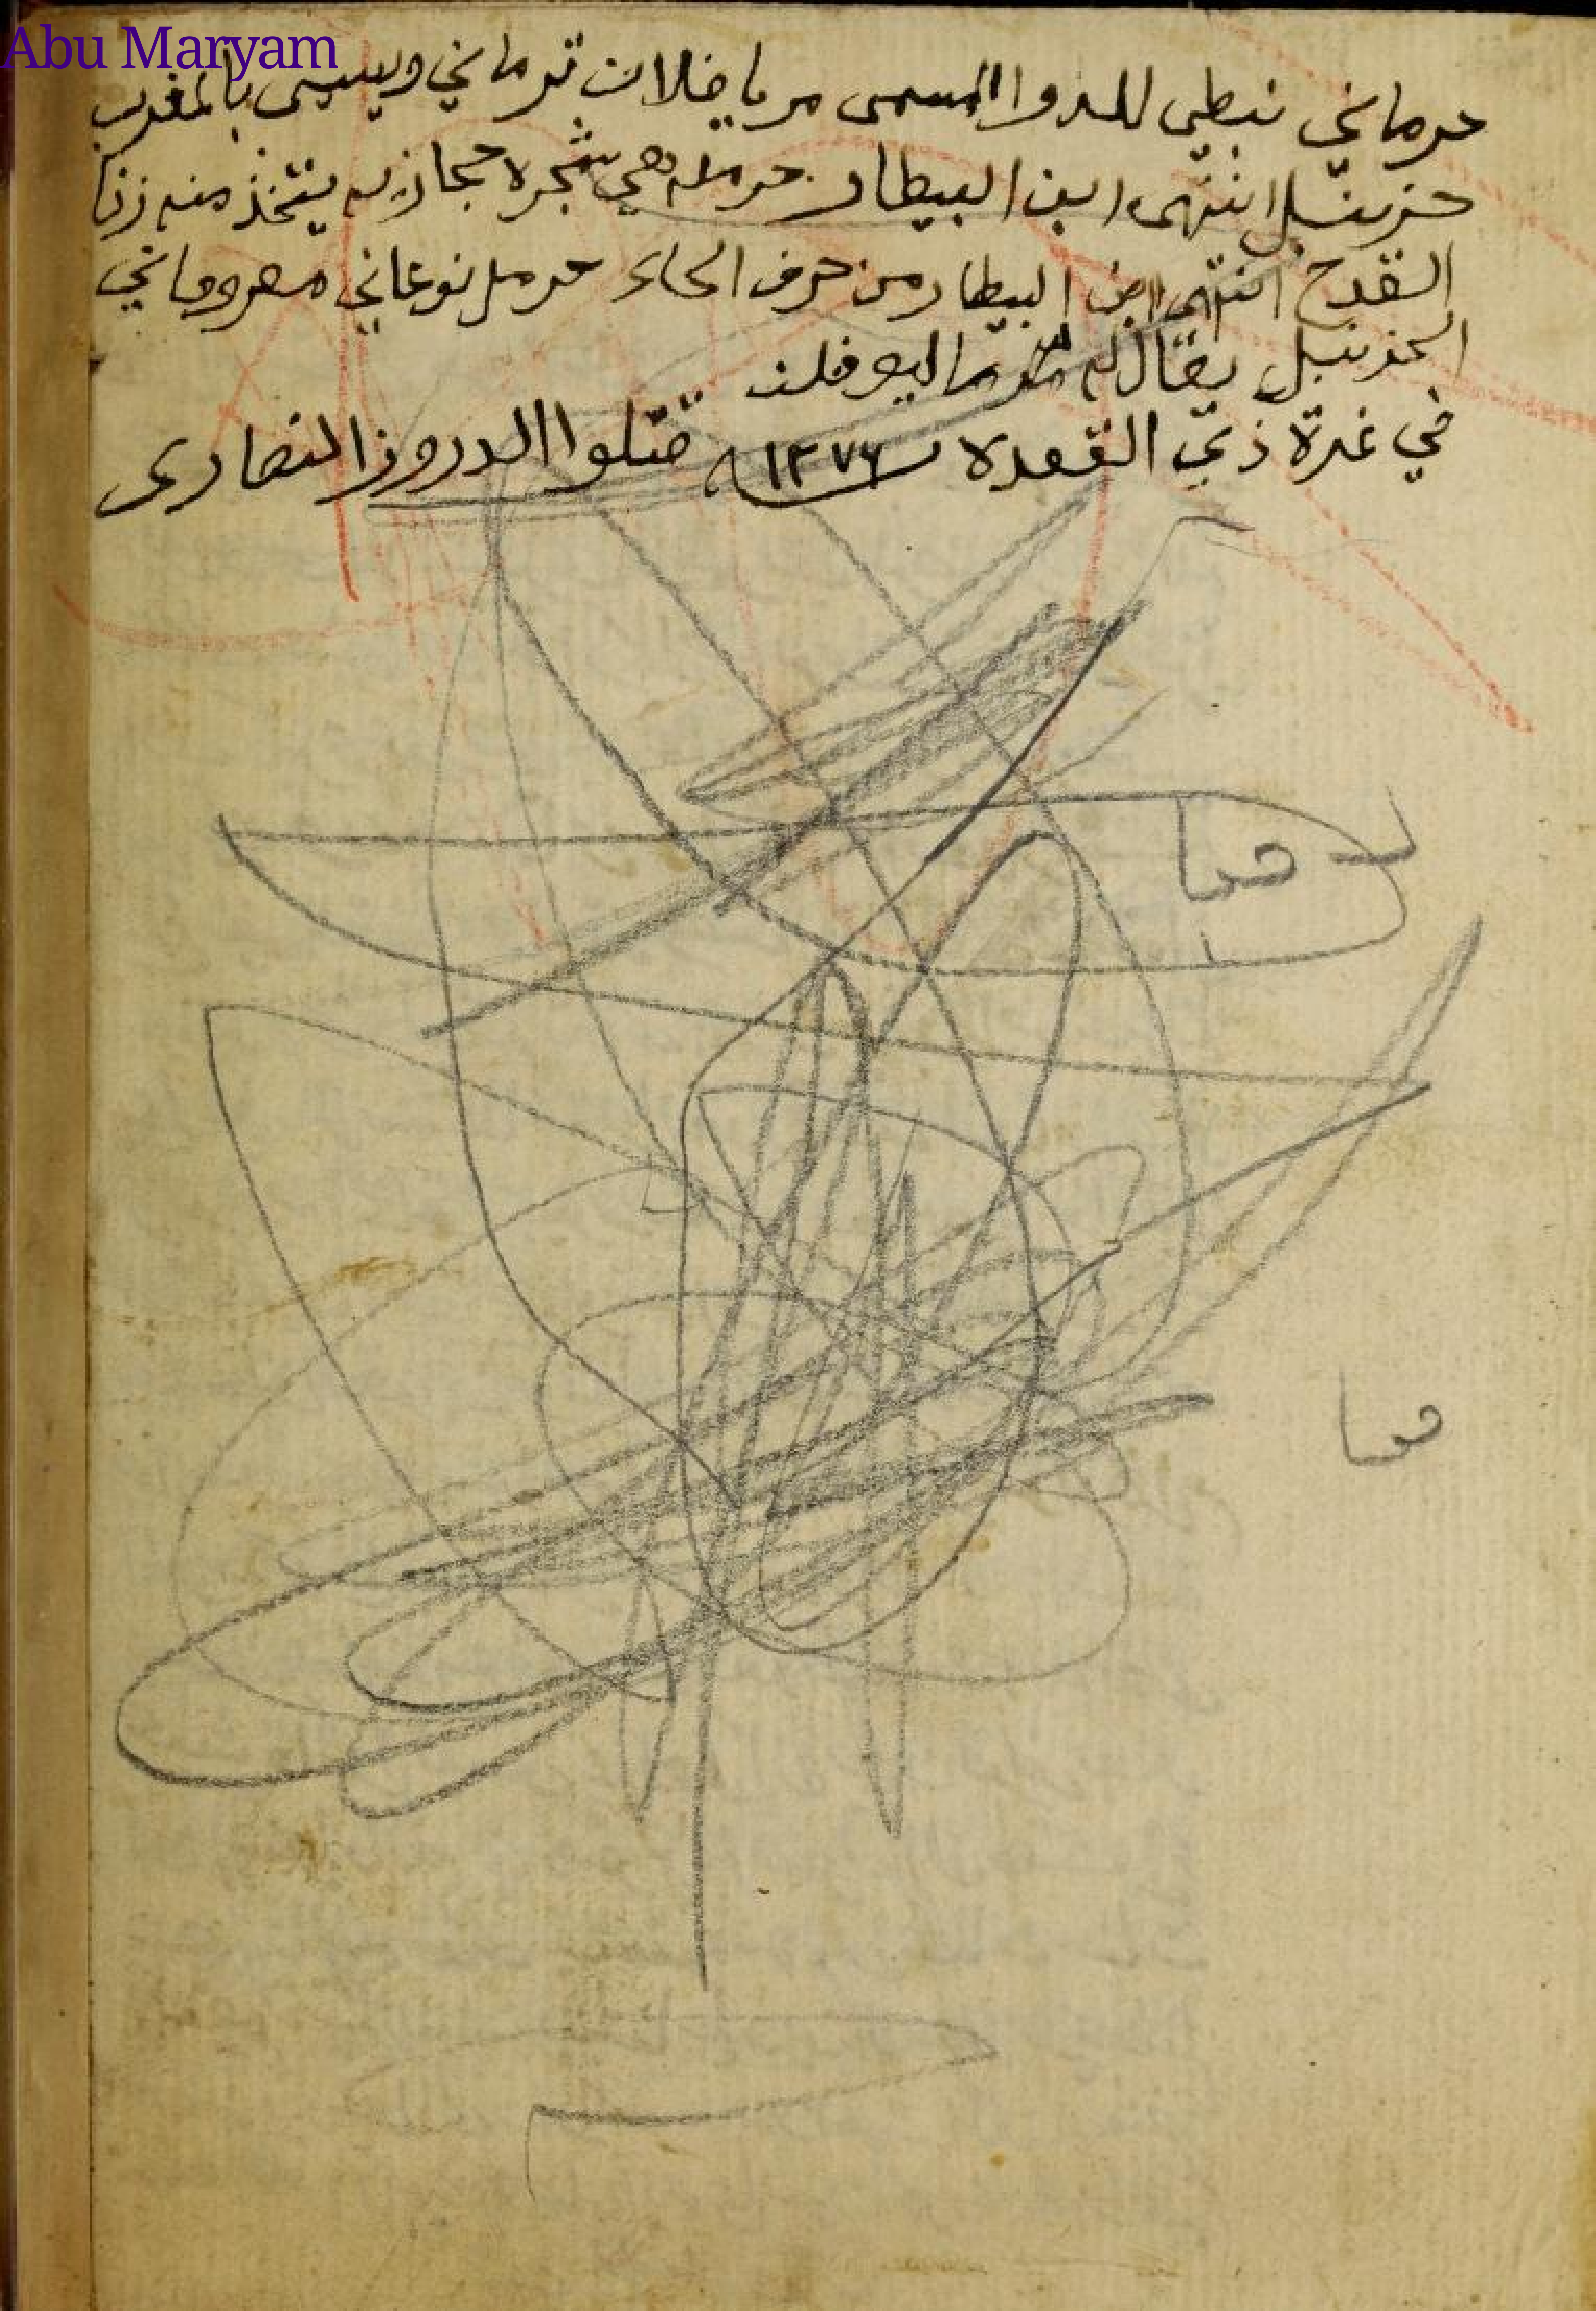 Abu Maryam
حرماني نبطي للدوا المسمى مريافلان ترماني ويسمى بالمغرب
حزنبل انتهى ابن البيطار حرمله هي شجرة حجازيه يتخذ منه زناد
القدح انتهى ابن البيطار من حرف الحاء حرمل نوعاني
الحزنبل يقال له
في غرة ذي القعده سنة ١٢٧٦ قتلوا الدروز النصارى